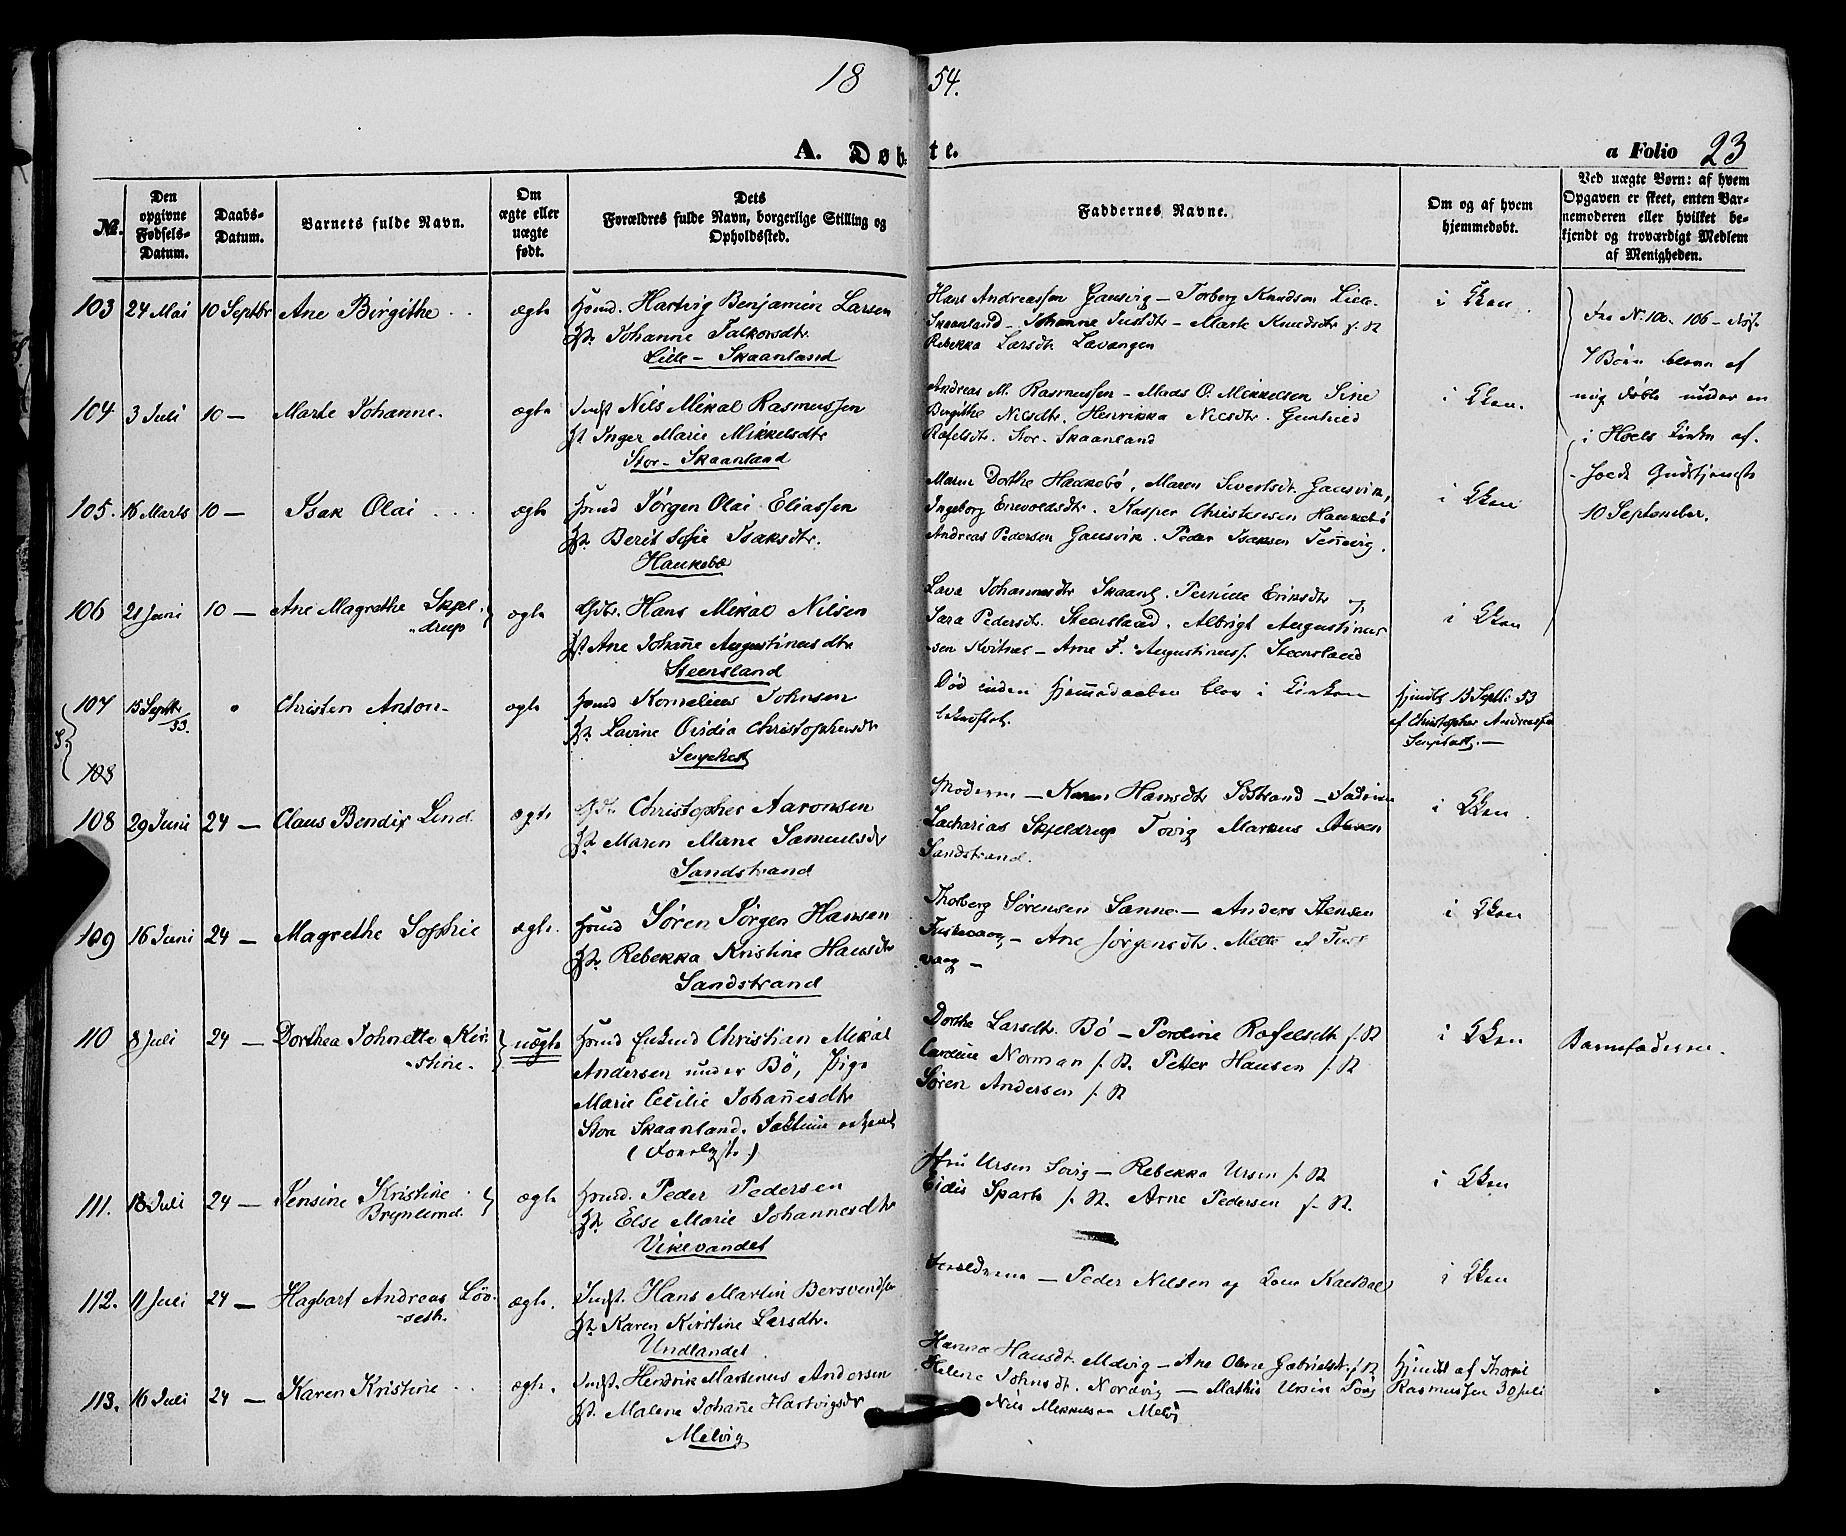 18 54.
A. Døbte. a Folio 23
No. Den opgivne Fødsels-Datum. Daabs-Datum. Barnets fulde Navn. Om ægte eller uægte født. Dets Forældres fulde Navn, borgerlige Stilling og Opholdssted. Faddernes Navne. Om og af hvem hjemmedøbt. Ved uægte Børn: af hvem Opgaven er skeet, enten Barnemoderen eller hvilket bekjendt og troværdigt Medlem af Menigheden.
103 24 Mai 10 Septbr Ane Birgithe ægte Hmd. Hartvig Benjamin Larsen
Johanne Falkorsdtr
Lille-Skaanland
Hans Andreassen Gausvig - Torberg Knudsen Lille-
Skaanland - Johanne Justdtr - Marte Knudsdtr
Rebekka Larsdtr Lavangen
i Kken
Fra N. 100-106
7 Børn bleve af
mig døbte under en
i Hols Kirke af-
holdt Gudstjeneste
10 September.
104 3 Juli 10 - Marte Johanne. ægte Indst Nils Mikal Rasmussen
Inger Marie Mikkelsdtr
Stor-Skaanland
Andreas M. Rasmussen - Mads O. Mikkelsen Sine
Birgithe Nilsdtr. Henrikka Nilsdtr.
Rafelsdtr. Stor-Skaanland
i Kken.
105. 16 Marts 10 - Isak Olai ægte Hmd Jørgen Olai Eliassen
Berit Sofie Isaksdtr.
Haukebø
Maren Dorthe Haukebø, Maren Sivertsdtr. Gausvik,
Ingeborg Enevoldsdtr. Kasper Christensen Haukebø
Andreas Pedersen Gausvik. Peder Isaksen Tennevig.
i Kken
106 21 Juni 10 - Ane Magrethe Skjel-
drup
ægte Gdbr. Hans Mikal Nilsen
Ane Johanne Augustinusdtr
Steensland
Lava Johannesdtr Skaanl. Pernille Eriksdtr
Sara Pedersdtr. Steensland. Albrigt Augustinus-
sen Kvitnes - Arne F. Augustinuss. Steensland
i Kken
107 13 Septbr 53. Christen Anton ægte Hmd Kornelius Johnsen
Lavine Ovidia Christophersdtr
Død inden Hjemmedaaben blev i Kirken
bekræftet.
Hjmdbt 13 Septbr 53
af Christopher Andreassen
108
108 29 Juni 24 - Claus Bendix Lind ægte Gdbr. Christopher Aaronsen
Maren Marie Samuelsdtr
Sandstrand
Moderen - Karen Hansdtr Sandstrand
Zacharias Skjeldrup Tovig Markus
Sandstrand.
i Kken
109 16 Juni 24 - Magrethe Sophie ægte. Hmd Søren Jørgen Hansen
Rebekka Kristine Hansdtr
Sandstrand
Thorberg Sørensen Sanne - Anders Stensen
Fuskevaag - Ane Jørgensdtr. Mette
vaag -
i Kken
110 8 Juli 24 - Dorthea Johnette Kir-
stine.
uægte Hmd Enkemd Christian Mikal
Andersen under Bø, Pige
Marie Cecilie Johannesdtr
Store Skaanland.
Dorthe Larsdtr. Bø - Perdine Rafelsdtr f. St
Caroline Norman f. St. Petter Hansen f. St
Søren Andersen f. St
i Kken
Barnefaderen.
111. 13 Juli 24 - Jensine Kristine
Brynlund
ægte Hmd. Peder Pedersen
Else Marie Johannesdtr
Vikevandet
Ursin Tovig - Rebekka Ursin f. St
Eidis Sparbo f. St. Arne Pedersen f. St.
i Kken
112. 11 Juli 24 - Hagbart Andreas Løv-
seth.
ægte. Indst. Hans Martin Bersvendsen
Karen Kirstine Larsdtr.
Undlandet
Forældrene - Peder Nilsen og Kone Kasfdal
i Kken
113. 16 Juli 24 - Karen Kristine ægte. Indst. Hendrik Martinus Andersen
Malene Johanne Hartvigsdtr
Melvig
Hanna Hansdtr. Melvig - Ane Oline Gabrielsdtr. f. St
Helene Johnsdtr. Nordvig - Mathis Ursin Tovig
Nils Mikkelsen Melvig
Hjmdbt af
Rasmussen 30 Juli